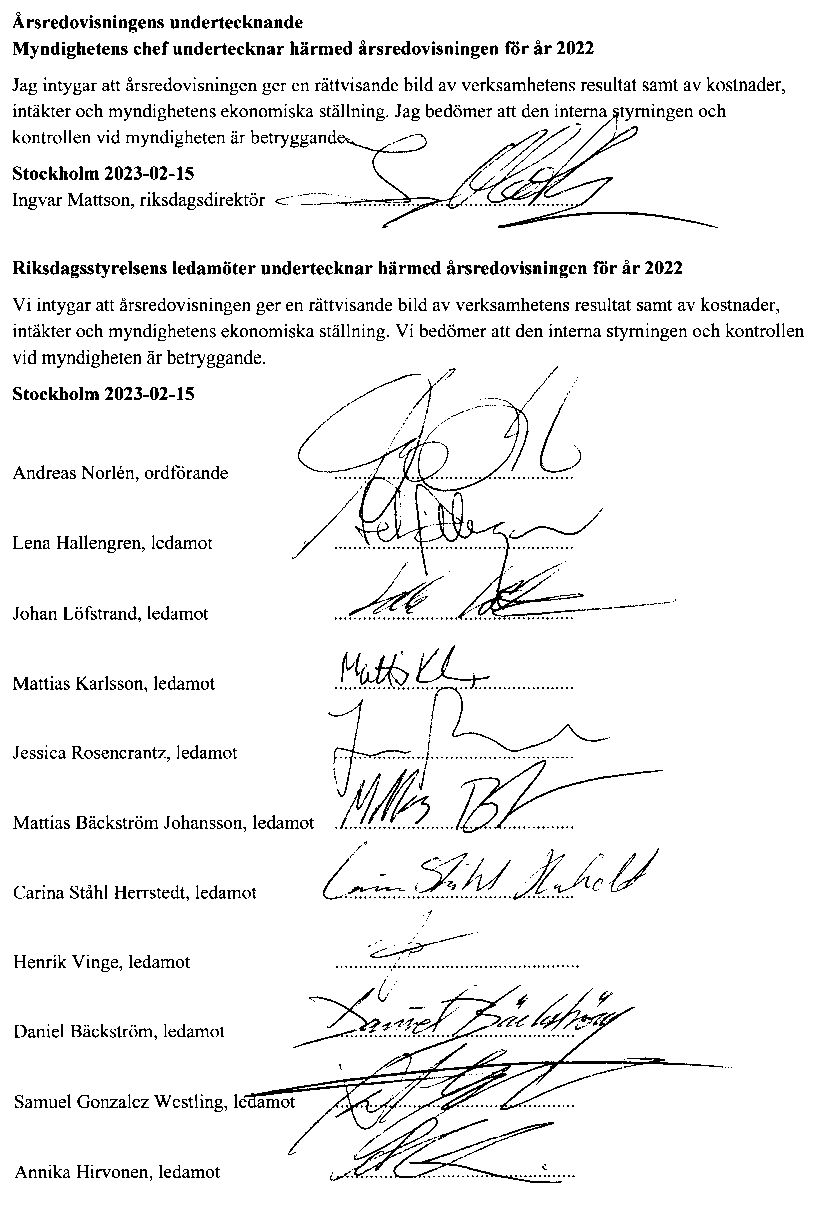 Årsredovisningens undertecknande
Myndighetens chef undertecknar härmed årsredovisningen för år 2022
Jag intygar att årsredovisningen ger en rättvisande bild av verksamhetens resultat samt av kostnader,
intäkter och myndighetens ekonomiska ställning. Jag bedömer att den interna styrningen och
kontrollen vid myndigheten är betryggande.
Stockholm 2023-02-15
Ingvar Mattson, riksdagsdirektör
Riksdagsstyrelsens ledamöter undertecknar härmed årsredovisningen för år 2022
Vi intygar att årsredovisningen ger en rättvisande bild av verksamhetens resultat samt av kostnader,
intäkter och myndighetens ekonomiska ställning. Vi bedömer att den interna styrningen och kontrollen
vid myndigheten är betryggande.
Stockholm 2023-02-15
Andreas Norlén, ordförande
Lena Hallengren, ledamot
Johan Löfstrand, ledamot
Mattias Karlsson, ledamot
Jessica Rosencrantz, ledamot
Mattias Bäckström Johansson, ledamot
Carina Ståhl Herrstedt, ledamot
Henrik Vinge, ledamot
Daniel Bäckström, ledamot Daniel Bäckström
Samuel Gonzalez Westling, ledamot
Annika Hirvonen, ledamot